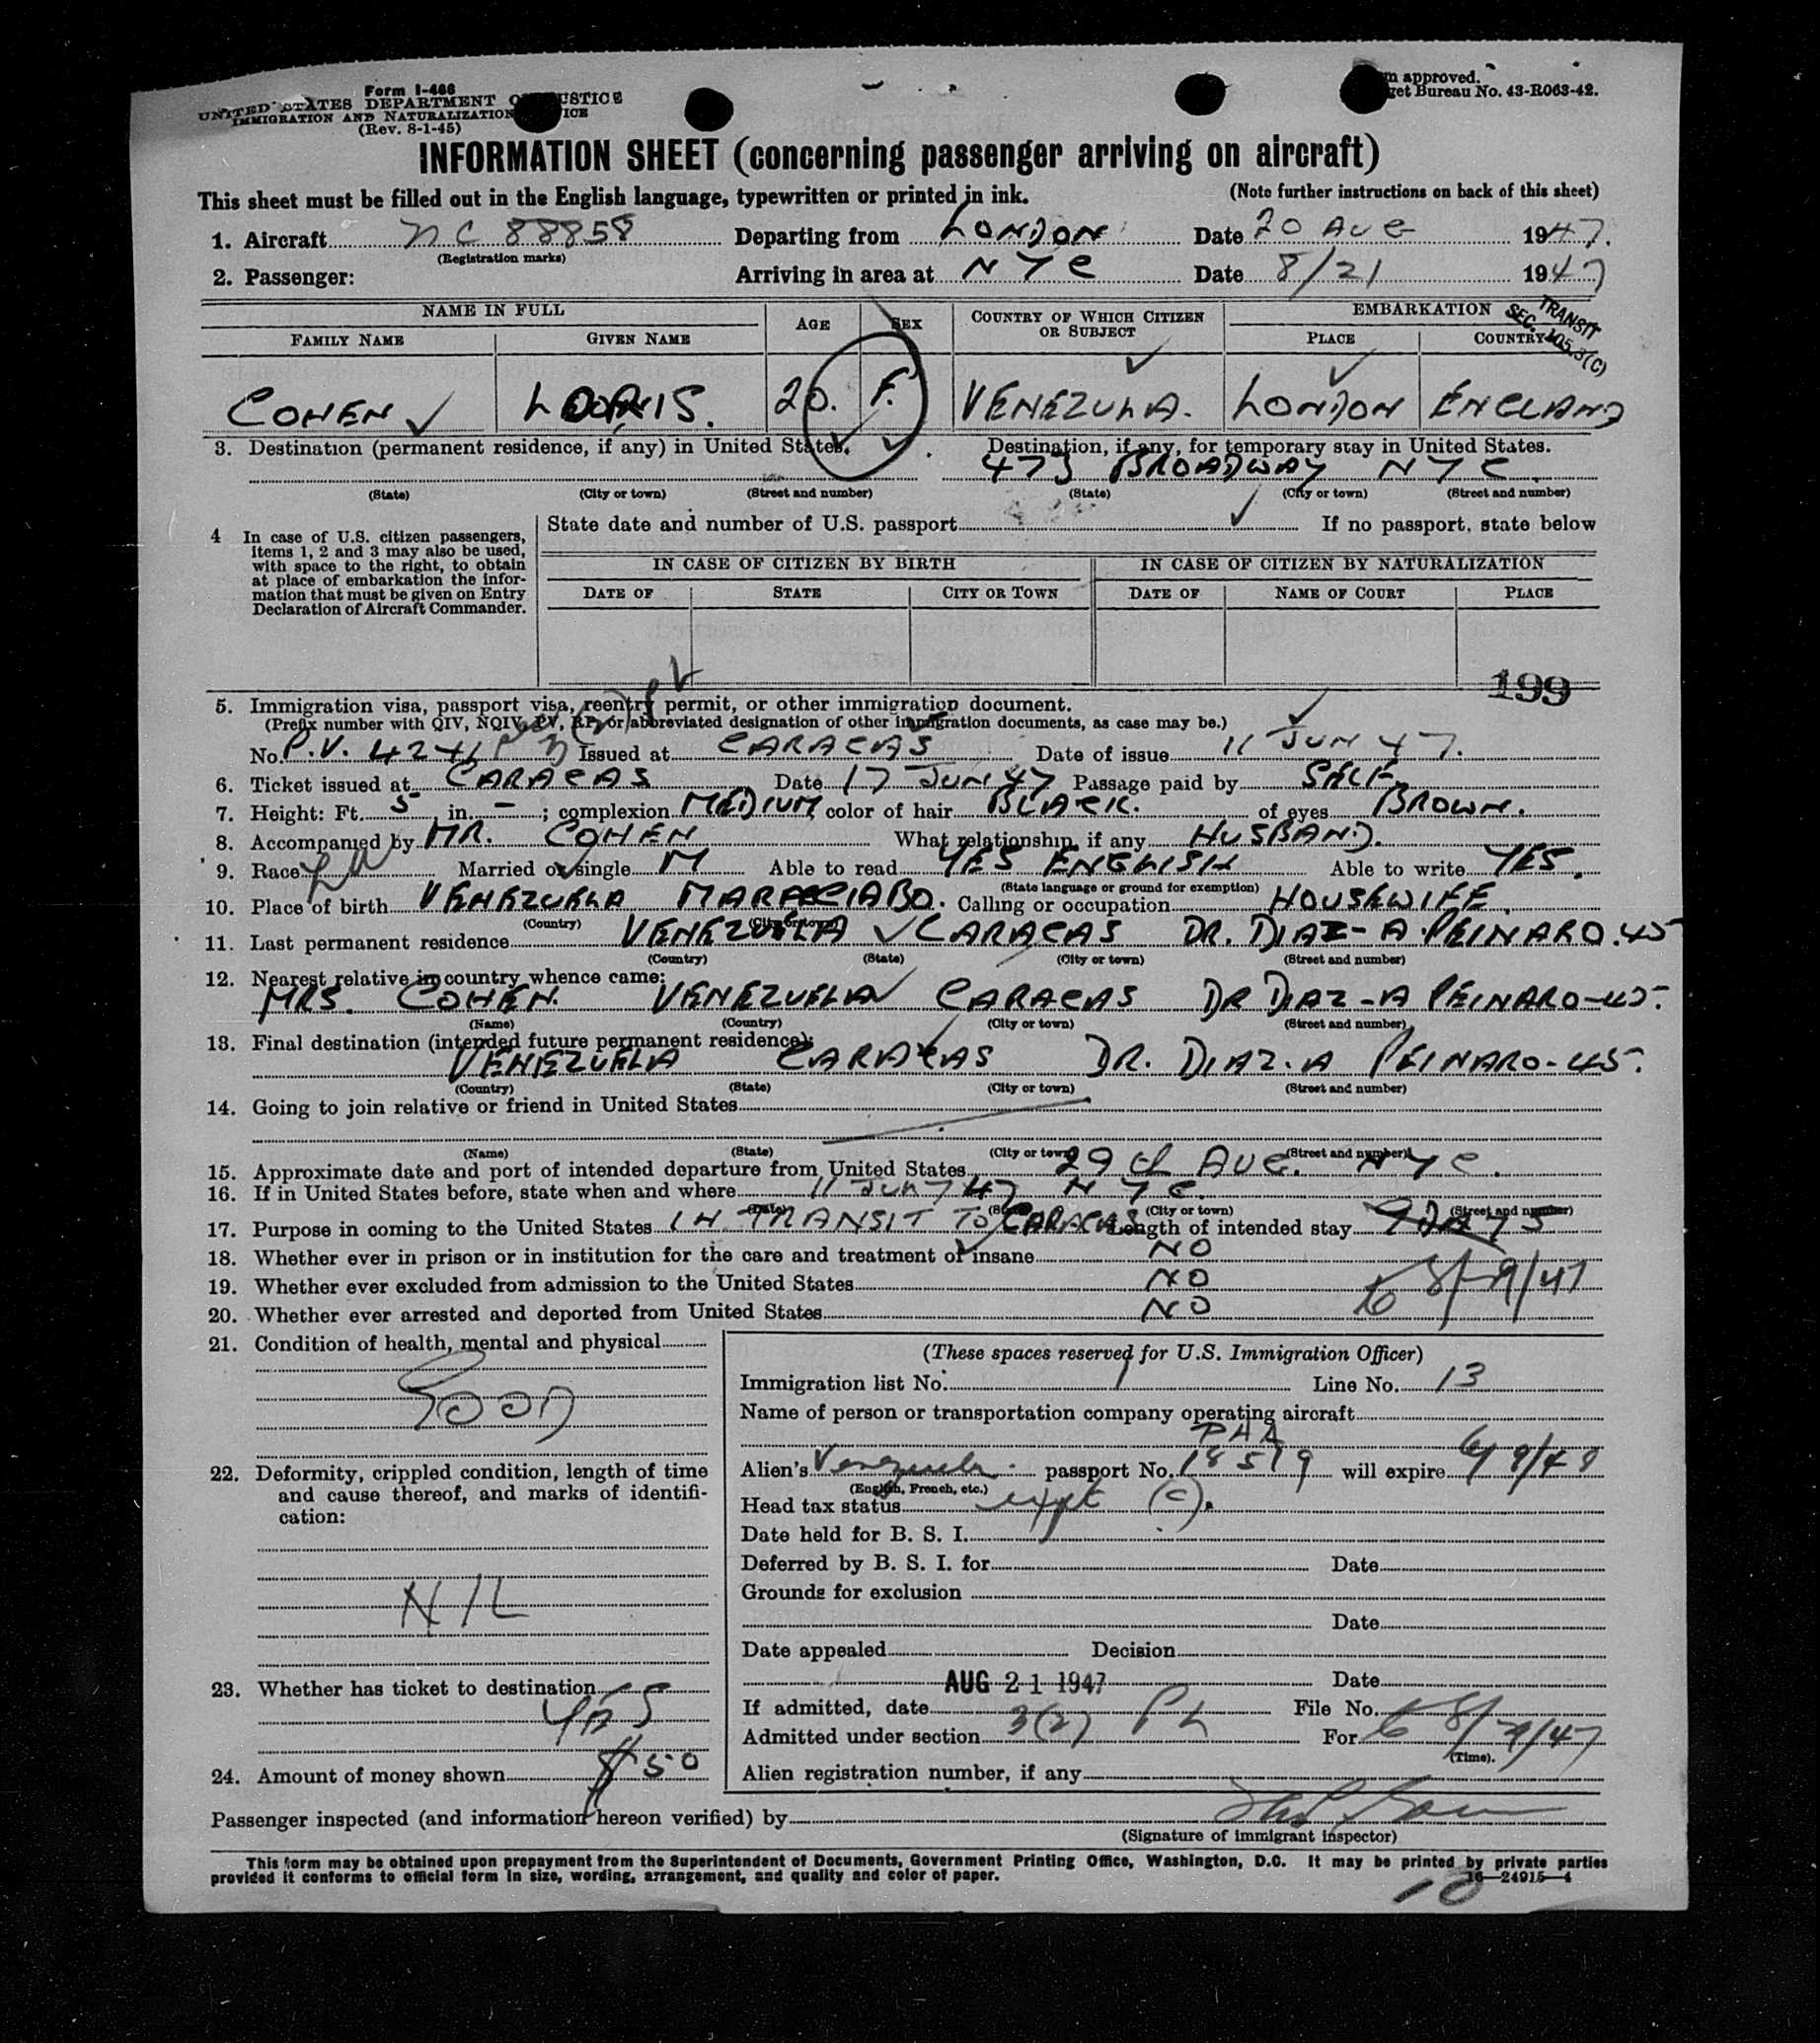 Form I-466
UNITED STATES DEPARTMENT OF JUSTICE
IMMIGRATION AND NATURALIZATION
(Rev. 8-1-45)
approved.
get Bureau No. 43-R063-42.
INFORMATION SHEET (concerning passenger arriving on aircraft)
This sheet must be filled out in the English language, typewritten or printed in ink. (Note further instructions on back of this sheet)
1. Aircraft NC 88858 Departing from LONDON Date 20 AUG 1947.
(Registration marks)
2. Passenger: Arriving in area at NYC Date 8/21 1947
TRANSIT
SEC. 105.3(C)
NAME IN FULL AGE SEX COUNTRY OF WHICH CITIZEN OR SUBJECT EMBARKATION
FAMILY NAME GIVEN NAME PLACE COUNTRY
COHEN 20. F. VENEZULA. LONDON ENGLAND
3. Destination (permanent residence, if any) in United States. Destination, if any, for temporary stay in United States.
473 BROADWAY NYC
(State) (City or town) (Street and number) (State) (City or town) (Street and number)
4 In case of U.S. citizen passengers, items 1, 2 and 3 may also be used, with space to the right, to obtain at place of embarkation the information that must be given on Entry Declaration of Aircraft Commander.
State date and number of U.S. passport If no passport, state below
IN CASE OF CITIZEN BY BIRTH IN CASE OF CITIZEN BY NATURALIZATION
DATE OF STATE CITY OR TOWN DATE OF NAME OF COURT PLACE
199
5. Immigration visa, passport visa, reentry permit, or other immigration document.
(Prefix number with QIV, NQIV, PV, RP, or abbreviated designation of other immigration documents, as case may be.)
No. P.V. Issued at CARACAS Date of issue 11 JUN 47.
6. Ticket issued at CARACAS Date 17 JUN 47 Passage paid by SELF
7. Height: Ft. 5 in. - ; complexion MEDIUM color of hair BLACK. of eyes BROWN.
8. Accompanied by MR. COHEN What relationship, if any HUSBAND.
9. Race Married or single M Able to read YES ENGLISH Able to write YES.
(State language or ground for exemption)
10. Place of birth VENEZUELA Calling or occupation HOUSEWIFE.
(Country) (City or town)
11. Last permanent residence VENEZUELA CARACAS DR. DIAZ-A PEINARO.45
(Country) (State) (City or town) (Street and number)
12. Nearest relative in country whence came:
MRS. COHEN. VENEZUELA CARACAS DR DIAZ-A PEINARO-45.
(Name) (Country) (City or town) (Street and number)
13. Final destination (intended future permanent residence):
VENEZUELA CARACAS DR. DIAZ.A PEINARO-45.
(Country) (State) (City or town) (Street and number)
14. Going to join relative or friend in United States
(Name) (State) (City or town) (Street and number)
15. Approximate date and port of intended departure from United States 29 AUG. NYC.
16. If in United States before, state when and where 11 JUN 47 NYC.
(Date) (State) (City or town) (Street and number)
17. Purpose in coming to the United States IN TRANSIT TO CARACAS Length of intended stay 9 DAYS
18. Whether ever in prison or in institution for the care and treatment of insane NO
19. Whether ever excluded from admission to the United States NO
20. Whether ever arrested and deported from United States NO
21. Condition of health, mental and physical
GOOD
22. Deformity, crippled condition, length of time and cause thereof, and marks of identification:
NIL
23. Whether has ticket to destination
YES
24. Amount of money shown $50
(These spaces reserved for U.S. Immigration Officer)
Immigration list No. 1 Line No. 13
Name of person or transportation company operating aircraft
PAA
Alien's Venezuela. passport No. 18519 will expire
(English, French, etc.)
Head tax status expt (c).
Date held for B. S. I.
Deferred by B. S. I. for Date
Grounds for exclusion
Date
Date appealed Decision
AUG 21 1947 Date
If admitted, date File No.
Admitted under section 3(2) For
(Time).
Alien registration number, if any
Passenger inspected (and information hereon verified) by
(Signature of immigrant inspector)
This form may be obtained upon prepayment from the Superintendent of Documents, Government Printing Office, Washington, D.C. It may be printed by private parties
provided it conforms to official form in size, wording, arrangement, and quality and color of paper. 16-24915-4
10